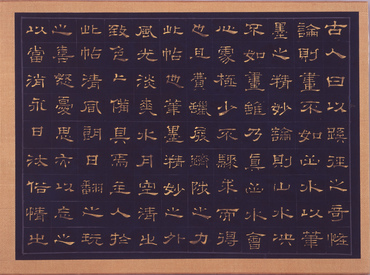 古人曰以蹊徑之奇怪
論則畫不如山水以筆
墨之精妙論則山水決
不如畫雖乃真山水會
心處極少不縣求而得
也且費躐屐躋陟之力
此帖也筆墨精妙之外
風光淡爽水月空清之
致色上備具焉主人於
此帖清風朗日翻之玩
之喜憂思亦以忘之
以當消永日滌俗情